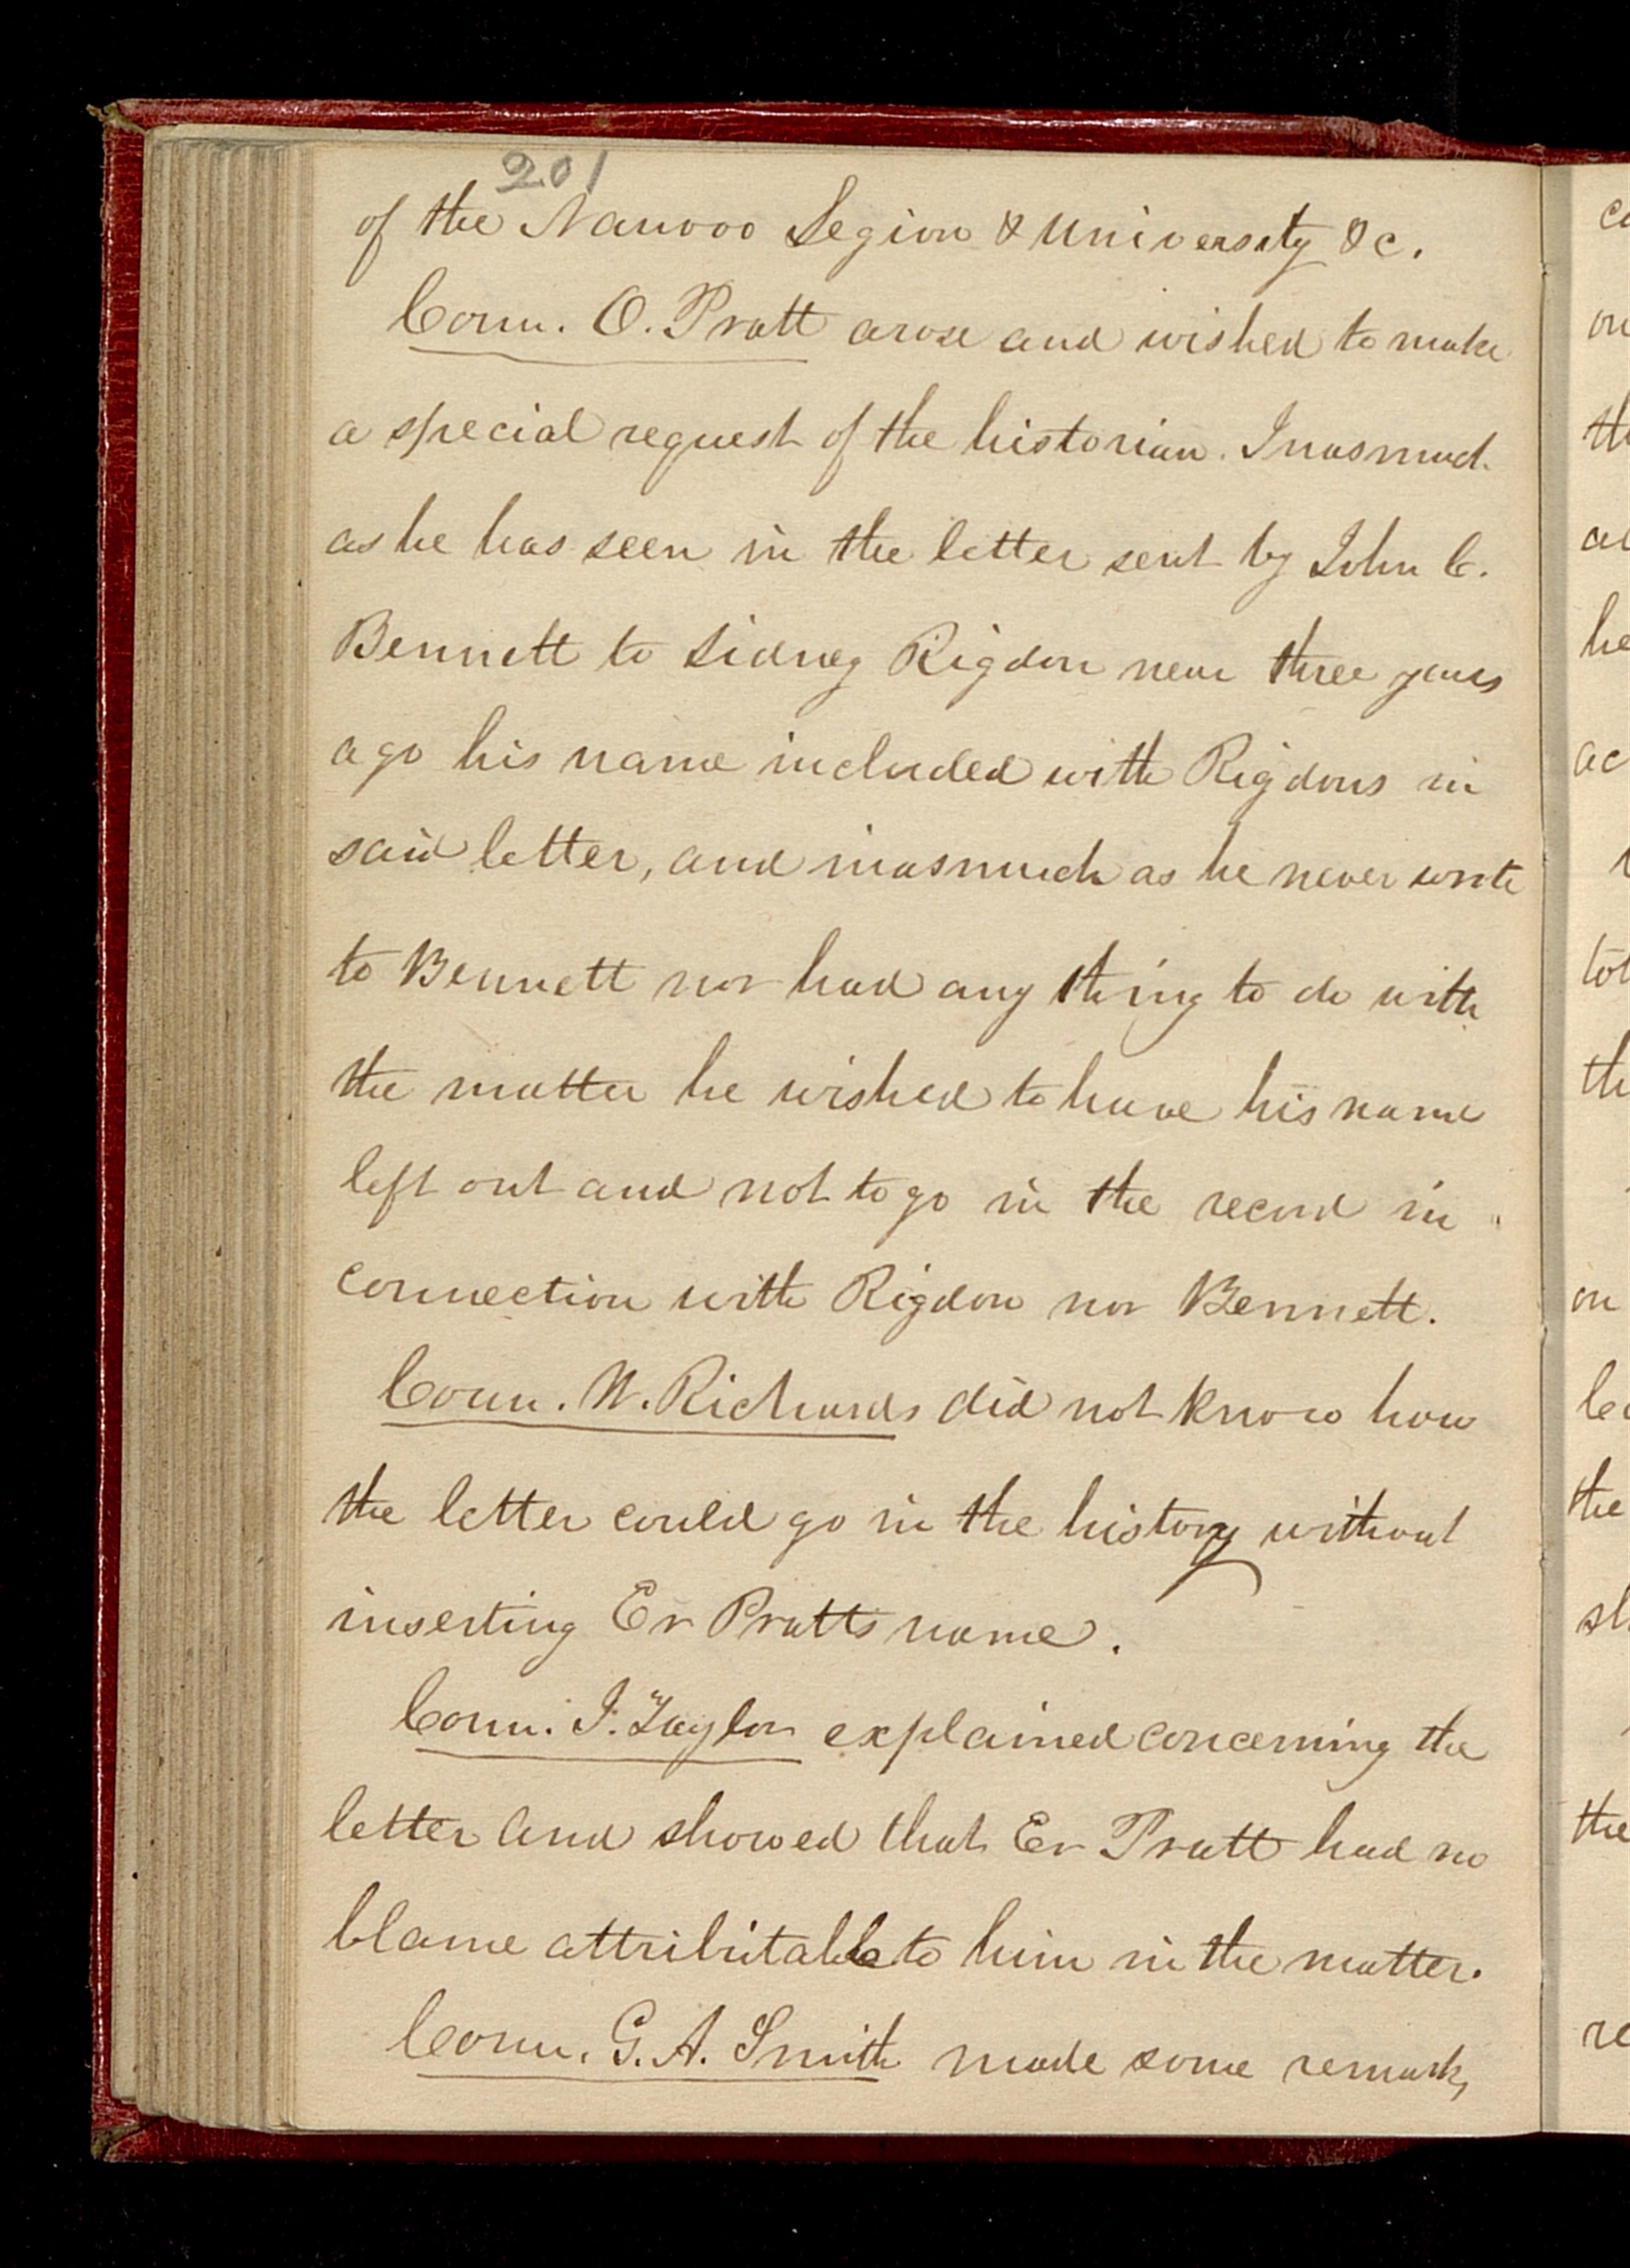 201
of the Nauvoo Legion & University &c.
Coun. O. Pratt arose and wished to make
a special request of the historian. Inasmuch
as he has seen in the letter sent by John C.
Bennett to Sidney Rigdon near three years
ago his name included with Rigdons in
said letter, and inasmuch as he never wrote
to Bennett nor had any thing to do with
the matter he wished to have his name
left out and not to go in the record in
connection with Rigdon nor Bennett.
Coun. W. Richards did not know how
the letter could go in the history without
inserting Er Pratts name.
Coun. J. Taylor explained concerning the
letter and showed that Er Pratt had no
blame attributable to him in the matter.
Coun. G. A. Smith made some remarks,